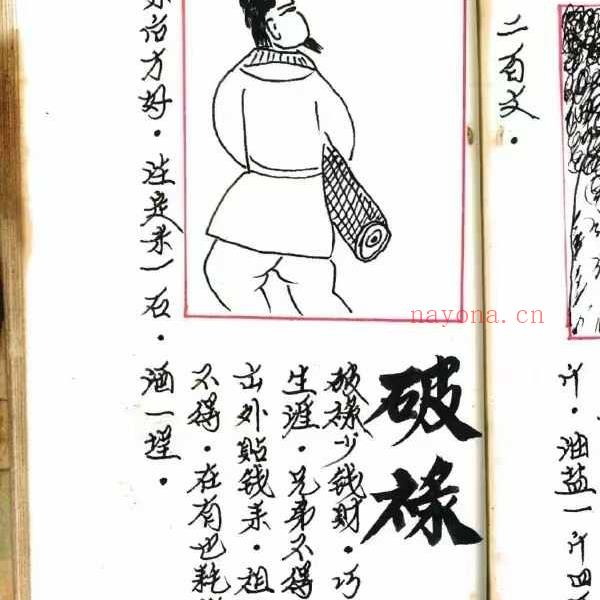 二百文。
斤。油盐一斤四
破禄
破禄少钱财。巧
生涯。兄弟不得
出外贴钱米。祖
不得。在有也耗
治方好。注定米一石。酒一埕。
nayona.cn